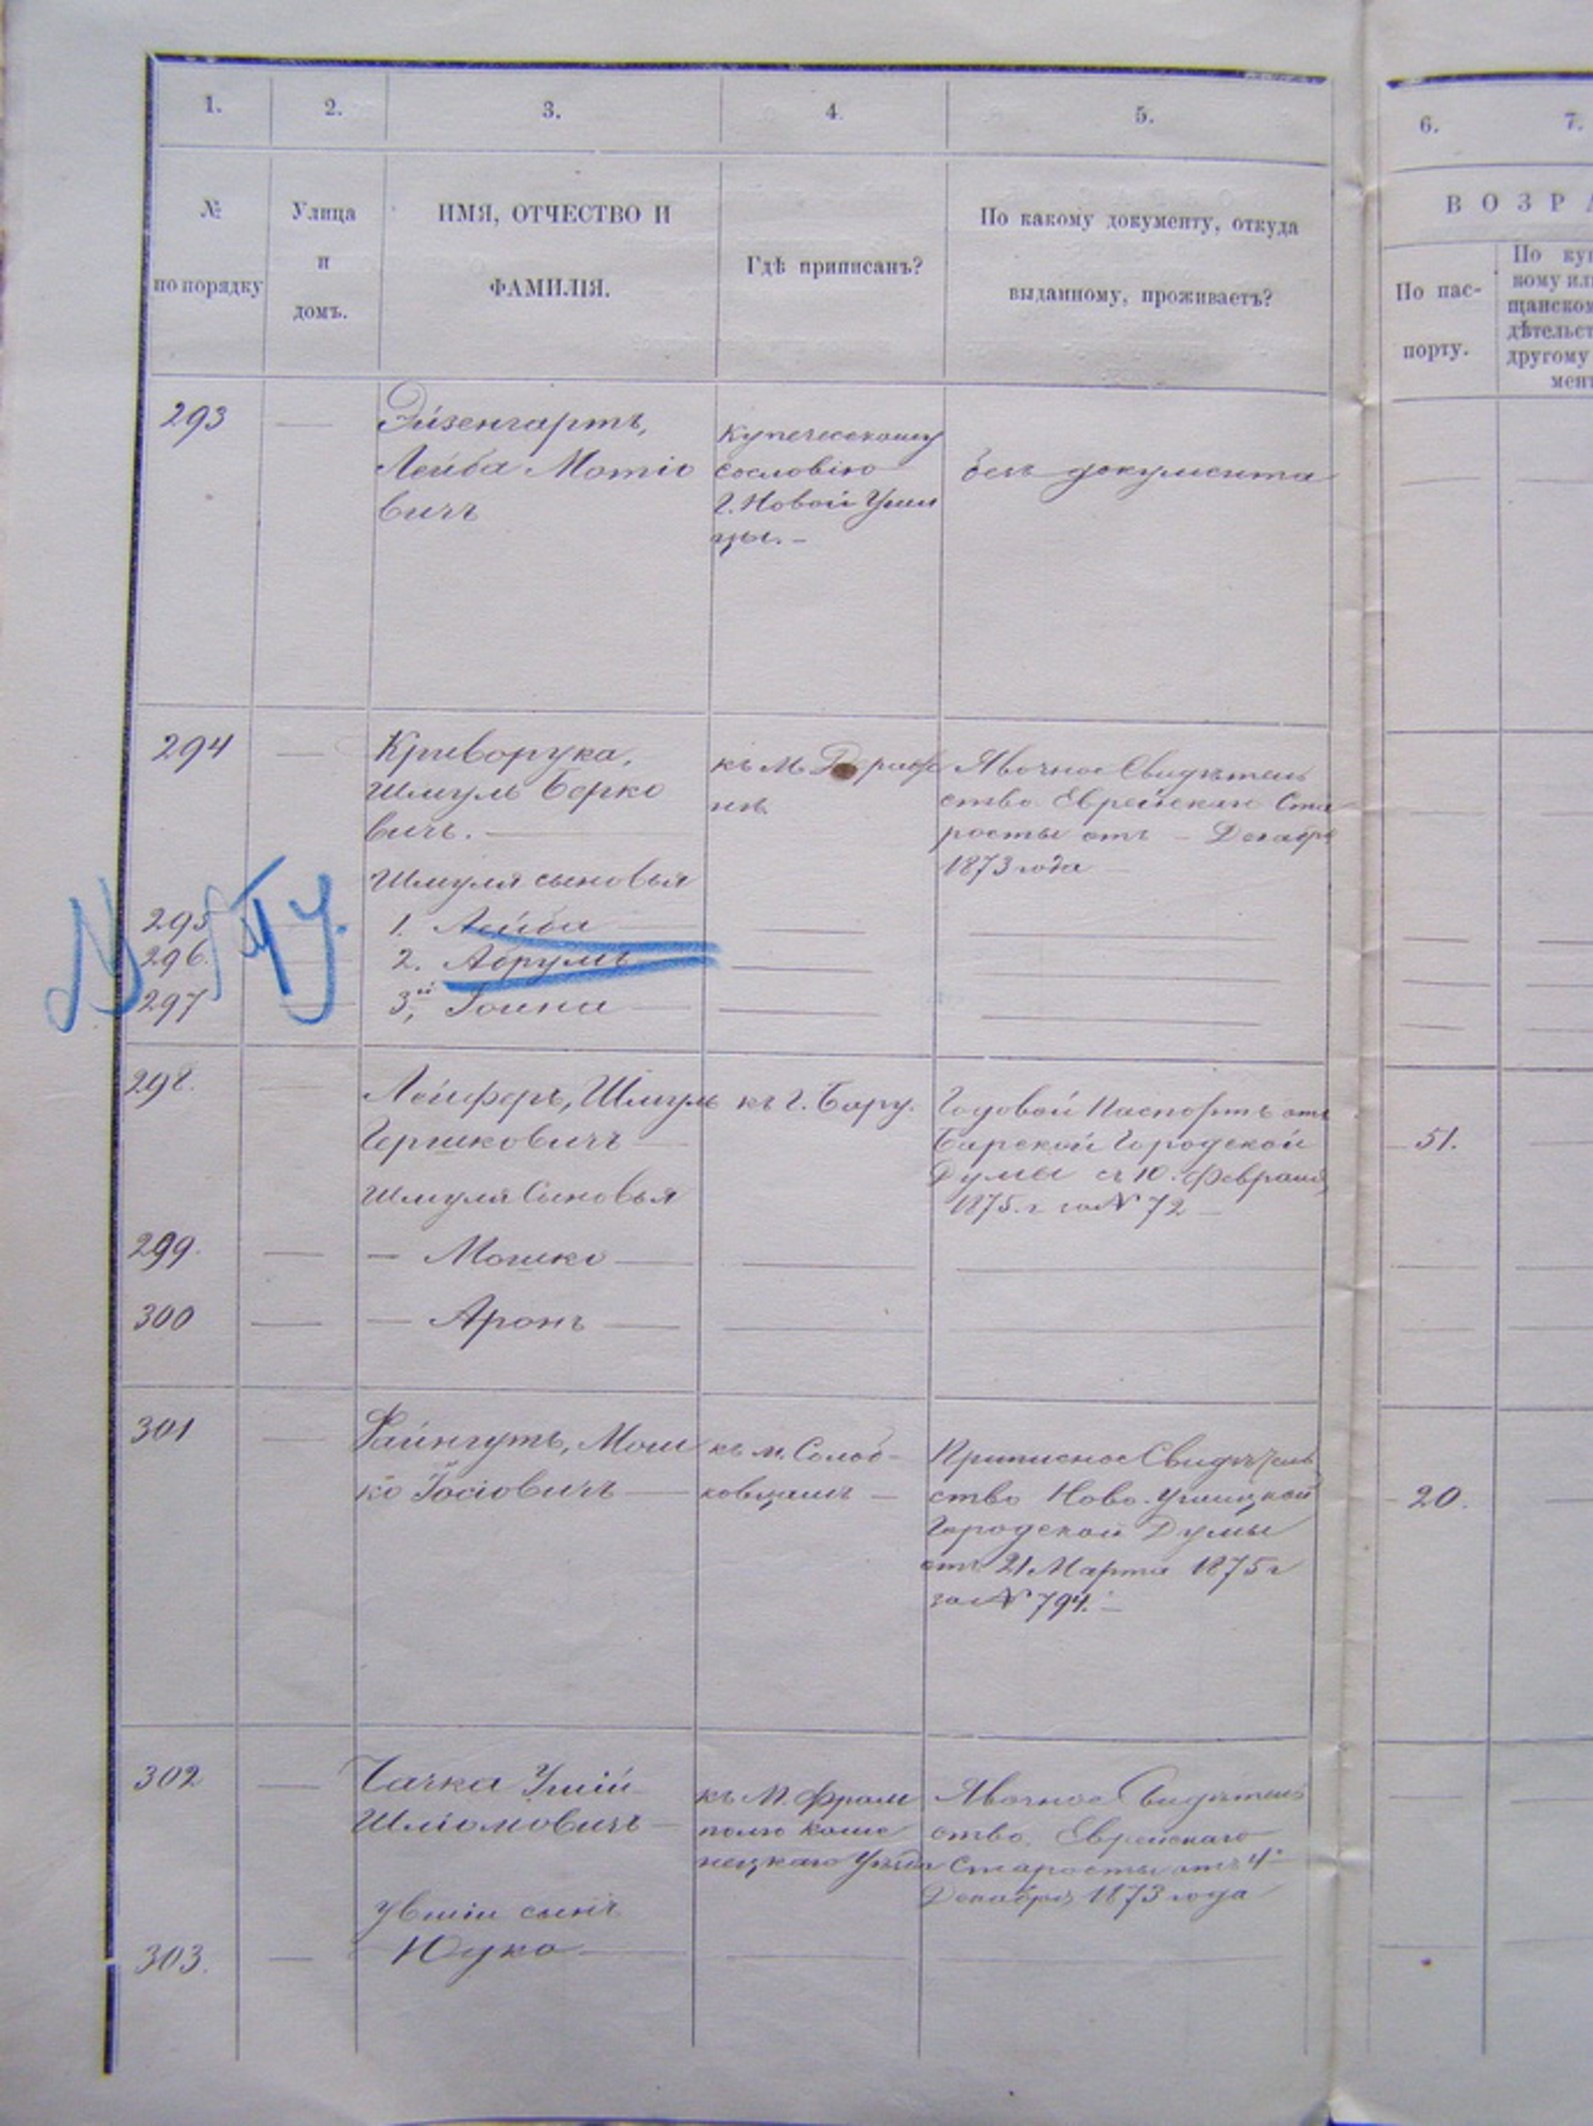 1. 2. 3. 4. 5. 6. 7.
№ по порядку
Улица и домъ.
ИМЯ, ОТЧЕСТВО И ФАМИЛІЯ.
Гдѣ приписанъ?
По какому документу, откуда выданному, проживаетъ?
ВОЗРА
По пас-
порту.
По куп
кому или
щанском
дѣтельст
другому
мент
293
Эйзенгартъ,
Лейба Мотіо
вичъ
Купеческому
сословію
г. Новой Уши
цы. —
безъ документа
294
Криворука,
Шмуль Берко
вичъ.
къ М.
Явочное Свидѣтель
ство Еврейскаго Ста
росты отъ — Декабря
1873 года
Шмуля сыновья
295 1. Лейба
296. 2. Абрумъ
297 3й, Іоина
298.
Лейферъ, Шмуль
Гершковичъ
къ г. Бару.
Годовой Паспортъ отъ
Барской Городской
Думы съ 10. Февраля
1875. г за № 72
51.
Шмуля Сыновья
299. — Мошко
300 — Аронъ
301
Файнгутъ, Мош
ко Іосіовичъ
къ м. Солод-
ковцамъ —
Приписное Свидѣтель
ство Ново-Ушицкой
Городской Думы
отъ 21 Марта 1875 г
за № 794. —
20.
302
Чачка Ушій
Шліомовичъ
къ М. Фрам
полю Каме
нецкаго Уѣзда
Явочное Свидѣтель
ство Еврейскаго
Старосты отъ 4
Декабря 1873 года
сынъ
303. Юуко